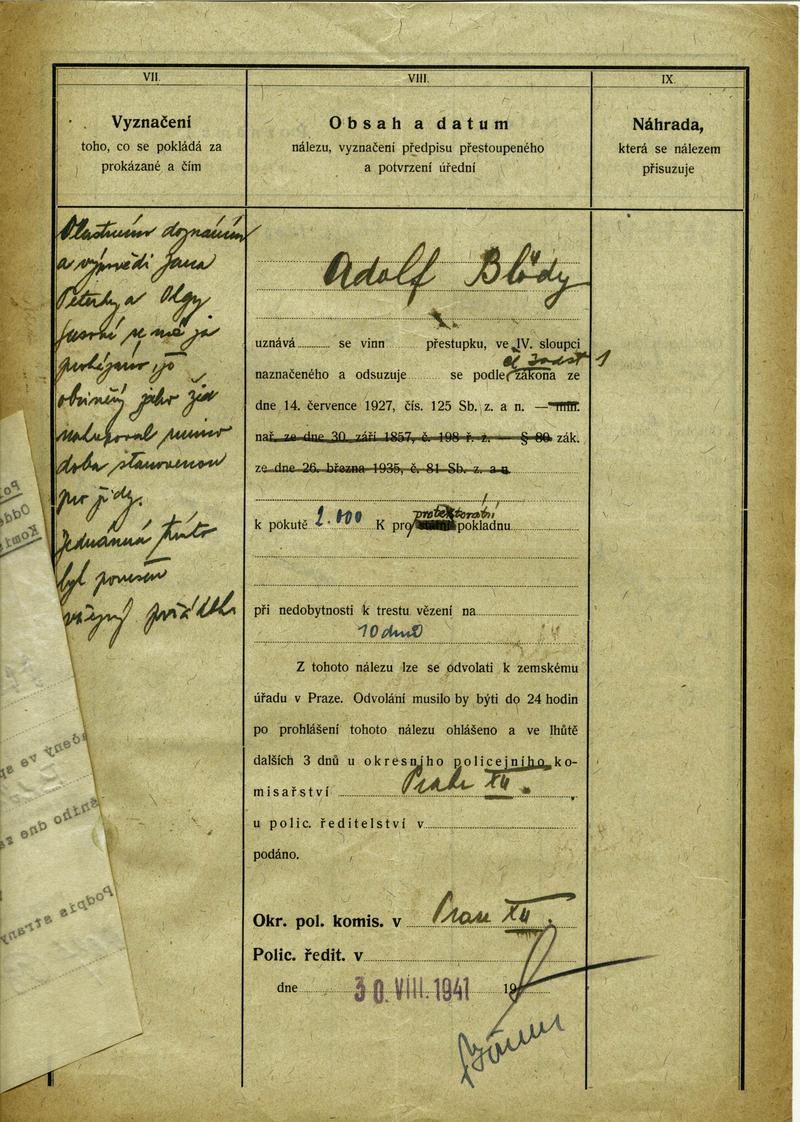 VII.
Vyznačení
toho, co se pokládá za
prokázané a čím
VIII.
Obsah a datum
nálezu, vyznačení předpisu přestoupeného
a potvrzení úřední
IX.
Náhrada,
která se nálezem
přisuzuje
Vlastním doznáním
a výpovědi Jana
Peterky a Olgy
že
obviněný jako žid
nakupoval mimo
doba stanovenou
pro židy.
Jednáním tímto
byl porušen
veřejný pořádek
Adolf Blödy
uznává se vinn přestupku, ve IV. sloupci
čl 3 odst 1
naznačeného a odsuzuje se podle zákona ze
dne 14. července 1927, čís. 125 Sb. z. a n. — min.
nař. ze dne 30. září 1857, č. 198 ř. z. — § 80. zák.
ze dne 26. března 1935, č. 81 Sb. z. a n.
protektorátní
k pokutě 2.000 K pro pokladnu
při nedobytnosti k trestu vězení na
10 dnů
Z tohoto nálezu lze se odvolati k zemskému
úřadu v Praze. Odvolání musilo by býti do 24 hodin
po prohlášení tohoto nálezu ohlášeno a ve lhůtě
dalších 3 dnů u okresního policejního ko-
misařství Praha XII.
u polic. ředitelství v
podáno.
Okr. pol. komis. v Praze XII.
Polic. ředit. v
dne 30. VIII. 1941 19
Oddě
Komis
ního dne za
Podpis strany